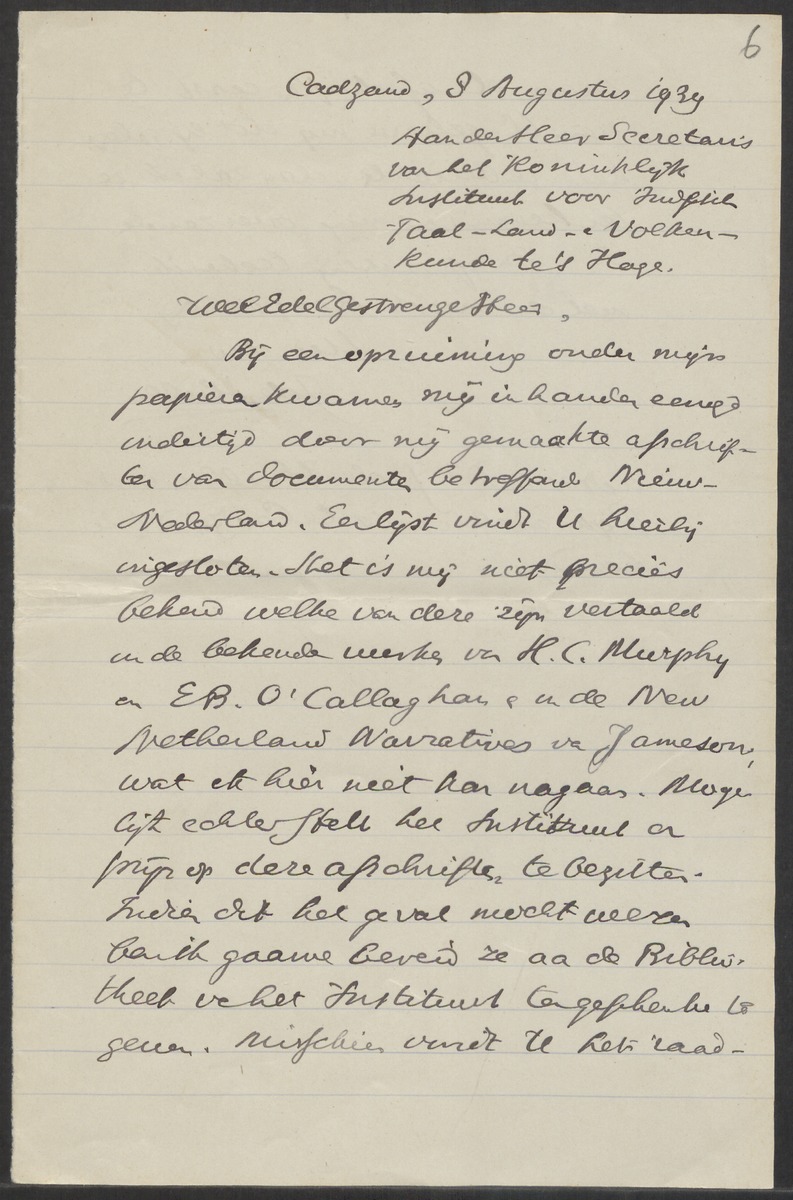 6
Cadzand, 8 Augustus 1939
Aan den Heer Secretaris
van het Koninklijk
Instituut voor Indische
Taal-Land- & Volken-
kunde te 's Hage.
WelEdelGestrenge Heer,
Bij een opruiming onder mijn
papieren kwamen mij in handen eenige
indertijd door mij gemaakte afschrif-
ten van documenten betreffend Nieuw-
Nederland. Een lijst vindt U hierbij
ingesloten. Het is mij niet precies
bekend welke van deze zijn vertaald
in de bekende werken van H.C. Murphy
en E.B. O'Callaghan & in de New
Netherland Narratives van Jameson,
wat ik hier niet kan nagaan. Moge-
lijk echter stelt het Instituut er
prijs op deze afschriften te bezitten.
Indien dit het geval mocht wezen
ben ik gaarne bereid ze aan de Biblio-
theek v. het Instituut ten geschenke te
geven. Misschien vindt U het raad-